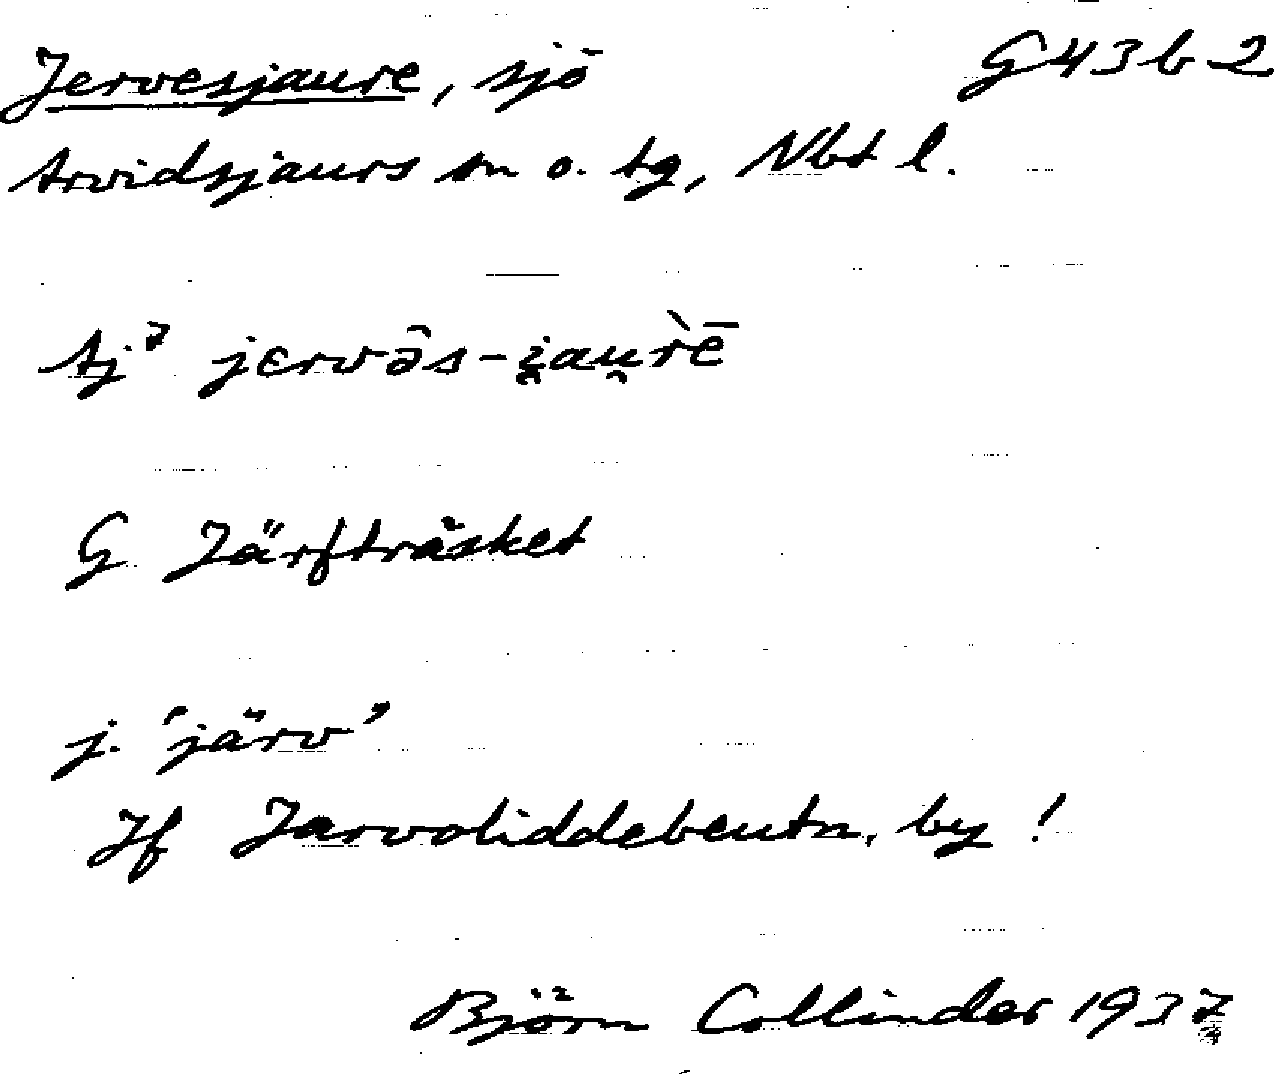 Jervesjaure, sjö G 43 b 2
Arvidsjaurs sn o. tg, Nbt l.
Aj³ jɛrvə̂s-i̯au̯rè̄
G Järfträsket
j. 'järv'
Jf Jarvoliddebeutn, by!
Björn Collinder 1937